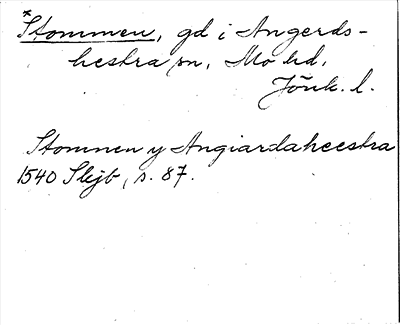 *Stommen, gd i Angerds-
hestra sn, Mo hd,
Jönk. l.
Stommen y Angiardaheestra
1540 Skjb, s. 87.